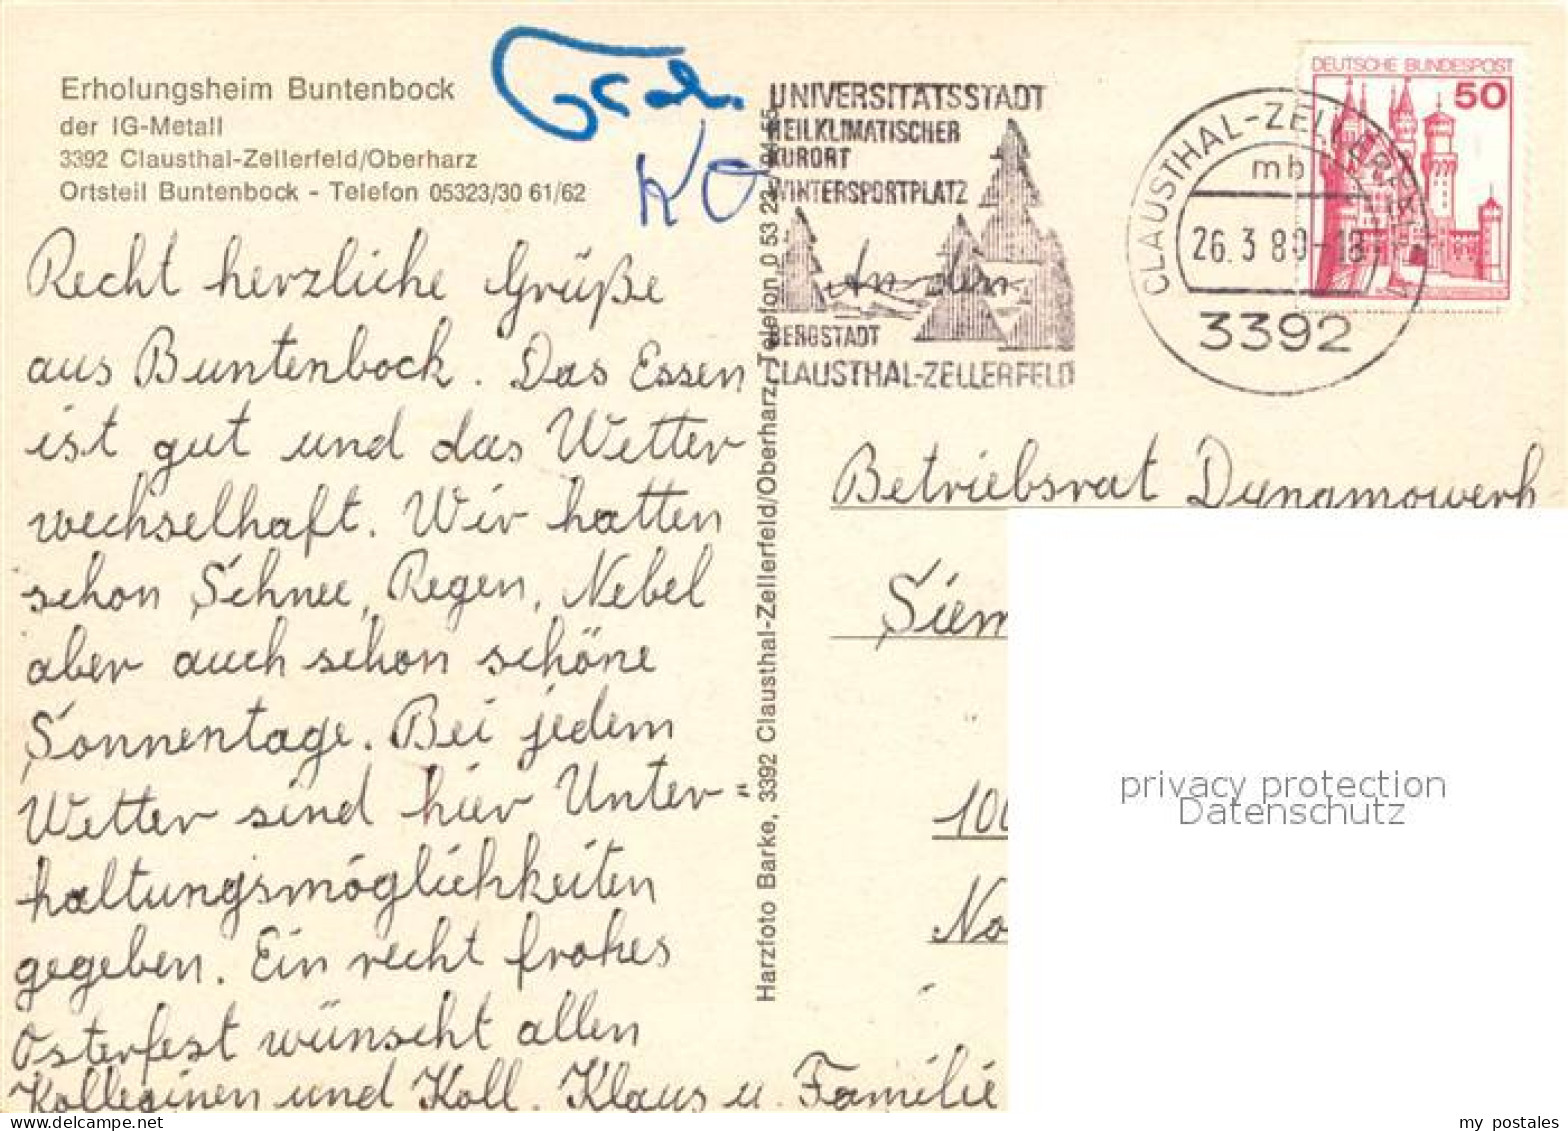 Erholungsheim Buntenbock
der IG-Metall
3392 Clausthal-Zellerfeld/Oberharz
Ortsteil Buntenbock - Telefon 05323/30 61/62
KO
Recht herzliche Grüße
aus Buntenbock. Das Essen
ist gut und das Wetter
wechselhaft. Wir hatten
schon Schnee, Regen, Nebel
aber auch schon schöne
Sonnentage. Bei jedem
Wetter sind hier Unter-
haltungsmöglichkeiten
gegeben. Ein recht frohes
Osterfest wünscht allen
Kolleginen und Koll. Klaus u. Familie
Harzfoto Barke, 3392 Clausthal-Zellerfeld/Oberharz, Telefon 0 53 23
UNIVERSITÄTSSTADT
HEILKLIMATISCHER
KURORT
WINTERSPORTPLATZ
BERGSTADT
CLAUSTHAL-ZELLERFELD
An den
CLAUSTHAL-ZELLERFELD
mb
26.3.80-18
3392
DEUTSCHE BUNDESPOST
50
Betriebsrat Dynamowerk
Siem
100
No
privacy protection
Datenschutz
my postales